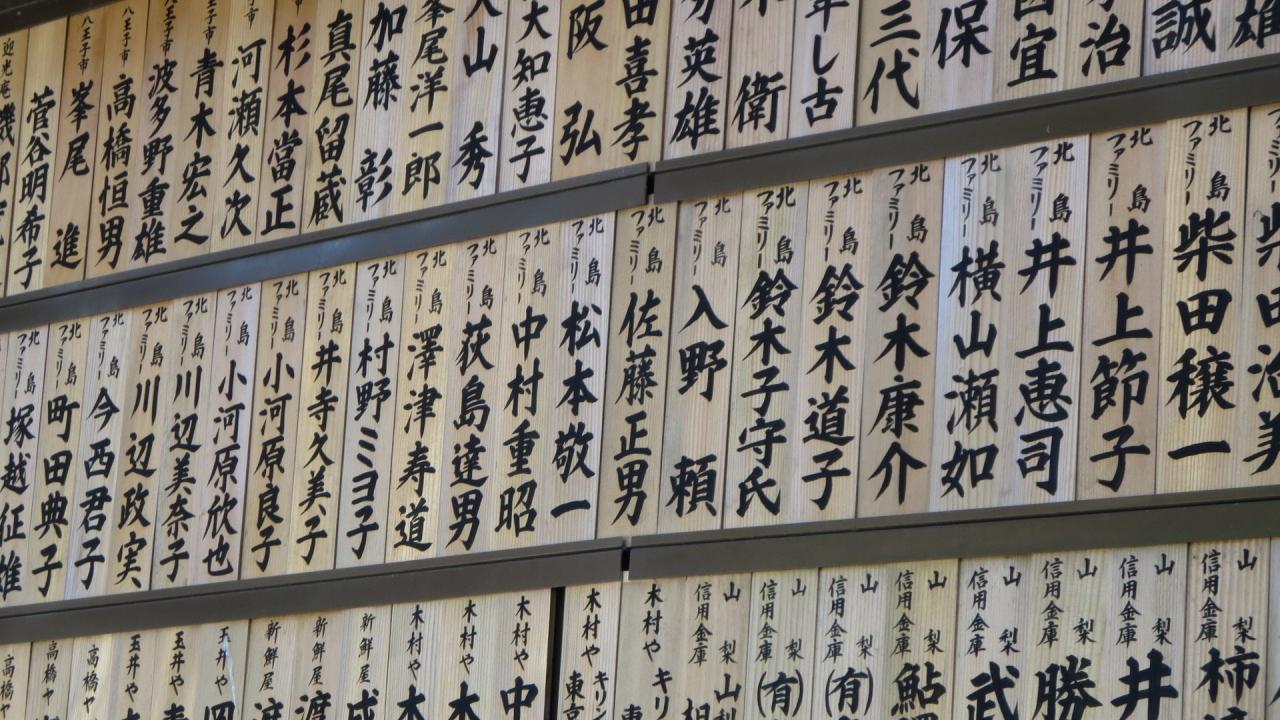 雄
誠
治
宜
保
三代
し古
衛
英雄
田喜孝
阪 弘
山 秀
大知恵子
峯尾洋一郎
加藤 彰
真尾留蔵
杉本當正
市 河瀬久次
王子市 青木宏之
八王子市 波多野重雄
八王子市 高橋恒男
八王子市 峯尾 進
菅谷明希子
北島ファミリー 柴田穣一
北島ファミリー 井上節子
北島ファミリー 井上恵司
北島ファミリー 横山瀬如
北島ファミリー 鈴木康介
北島ファミリー 鈴木道子
北島ファミリー 鈴木子守氏
北島ファミリー 入野 頼
北島ファミリー 佐藤正男
北島ファミリー 松本敬一
北島ファミリー 中村重昭
北島ファミリー 荻島達男
北島ファミリー 澤津寿道
北島ファミリー 村野ミヨ子
北島ファミリー 井寺久美子
北島ファミリー 小河原良子
北島ファミリー 小河原欣也
北島ファミリー 川辺美奈子
北島ファミリー 川辺政実
北島ファミリー 今西君子
北島ファミリー 町田典子
北島ファミリー 塚越征雄
山梨信用金庫 柿
山梨信用金庫 井
山梨信用金庫 勝
山梨信用金庫 武
山梨信用金庫 鮎
山梨信用金庫 (有)
山梨信用金庫 (有)
山梨信用金庫 山梨
木村や キリ
木村や キリン
木村や 中
木村や 木
木村や 木
新鮮屋 成
新鮮屋 渡
新鮮屋 渡
玉井や
玉井や
玉井や
高橋や
高橋や
高橋や